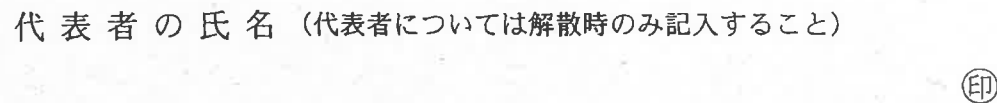 代表者の氏名（代表者については解散時のみ記入すること）
㊞